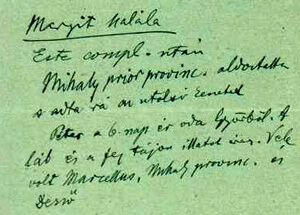 Margit halála
Este compl. után
Mihály prior provinc. áldoztatta
s adta rá az utolsó kenetet
Péter a 6. nap ér oda Győrből. A
láb és a fej táján illatot érez. Vele
volt Marcellus, Mihály provinc. és
Dezső